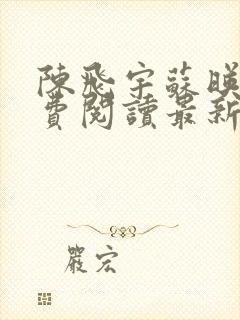 陳飛宇蘇映
費閱讀最新
嚴宏